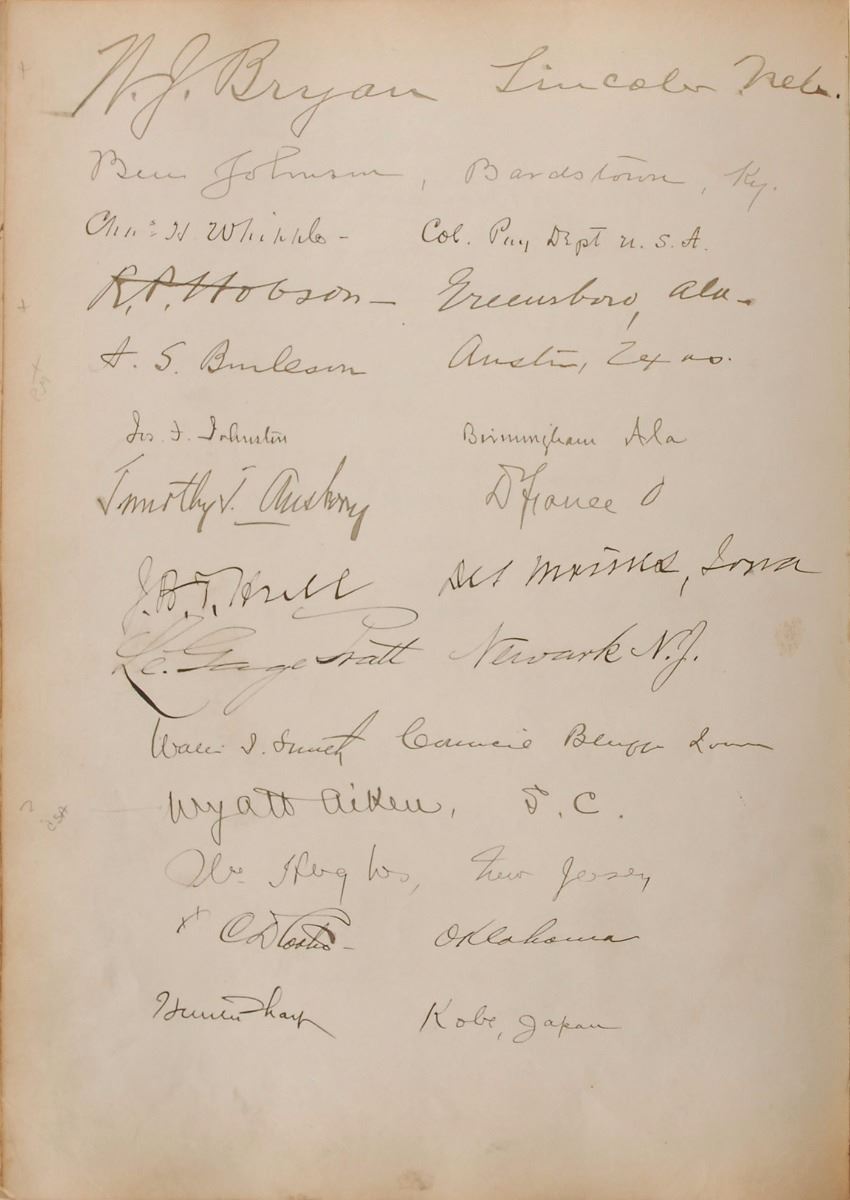 W. J. Bryan Lincoln Nebr.
Ben Johnson, Bardstown, Ky.
Chas H. Whipple - Col. Pay Dept U.S.A.
R. P. Hobson - Greensboro, Ala -
A. S. Burleson Austin, Texas.
Jos. F. Johnston Birmingham Ala
Timothy T. Ansberry Defiance O
J. A. T. Hull Des Moines, Iowa
Le Gage Pratt Newark N.J.
Walter I. Smith Council Bluffs Iowa
Wyatt Aiken, S.C.
Wm Hughes, New Jersey
C D Carter - Oklahoma
Kobe, Japan